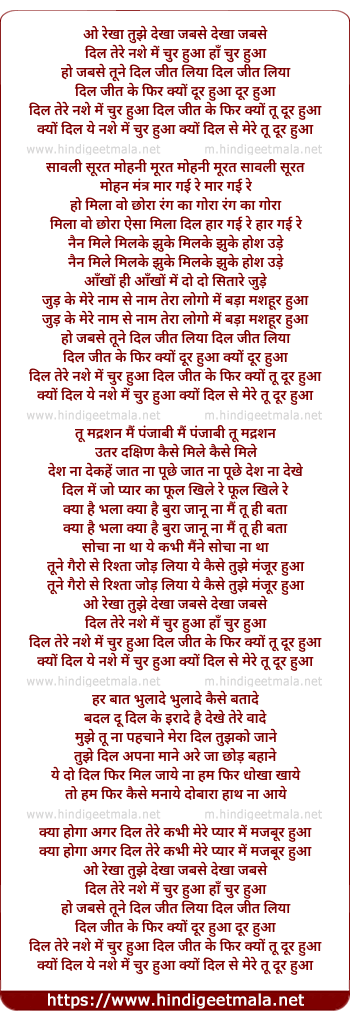 ओ रेखा तुझे देखा जबसे देखा जबसे
दिल तेरे नशे में चुर हुआ हाँ चुर हुआ
हो जबसे तूने दिल जीत लिया दिल जीत लिया
दिल जीत के फिर क्यों दूर हुआ दूर हुआ
दिल तेरे नशे में चुर हुआ दिल जीत के फिर क्यों तू दूर हुआ
क्यों दिल ये नशे में चुर हुआ क्यों दिल से मेरे तू दूर हुआ
www.hindigeetmala.net m.hindigeetmala.net
सावली सूरत मोहनी मूरत मोहनी मूरत सावली सूरत
मोहन मंत्र मार गई रे मार गई रे
हो मिला वो छोरा रंग का गोरा रंग का गोरा
मिला वो छोरा ऐसा मिला दिल हार गई रे हार गई रे
नैन मिले मिलके झुके मिलके झुके होश उड़े
नैन मिले मिलके झुके मिलके झुके होश उड़े
आँखों ही आँखों में दो दो सितारे जुड़े
जुड़ के मेरे नाम से नाम तेरा लोगो में बड़ा मशहूर हुआ
जुड़ के मेरे नाम से नाम तेरा लोगो में बड़ा मशहूर हुआ
हो जबसे तूने दिल जीत लिया दिल जीत लिया
दिल जीत के फिर क्यों दूर हुआ क्यों दूर हुआ
दिल तेरे नशे में चुर हुआ दिल जीत के फिर क्यों तू दूर हुआ
क्यों दिल ये नशे में चुर हुआ क्यों दिल से मेरे तू दूर हुआ
www.hindigeetmala.net m.hindigeetmala.net
तू मद्रशन मैं पंजाबी मैं पंजाबी तू मद्रशन
उतर दक्षिण कैसे मिले कैसे मिले
देश ना देकहें जात ना पूछे जात ना पूछे देश ना देखे
दिल में जो प्यार का फूल खिले रे फूल खिले रे
क्या है भला क्या है बुरा जानू ना मैं तू ही बता
क्या है भला क्या है बुरा जानू ना मैं तू ही बता
सोचा ना था ये कभी मैंने सोचा ना था
तूने गैरो से रिश्ता जोड़ लिया ये कैसे तुझे मंजूर हुआ
तूने गैरो से रिश्ता जोड़ लिया ये कैसे तुझे मंजूर हुआ
ओ रेखा तुझे देखा जबसे देखा जबसे
दिल तेरे नशे में चुर हुआ हाँ चुर हुआ
दिल तेरे नशे में चुर हुआ दिल जीत के फिर क्यों तू दूर हुआ
क्यों दिल ये नशे में चुर हुआ क्यों दिल से मेरे तू दूर हुआ
www.hindigeetmala.net m.hindigeetmala.net
हर बात भुलादे भुलादे कैसे बतादे
बदल दू दिल के इरादे है देखे तेरे वादे
मुझे तू ना पहचाने मेरा दिल तुझको जाने
तुझे दिल अपना माने अरे जा छोड़ बहाने
ये दो दिल फिर मिल जाये ना हम फिर धोखा खाये
तो हम फिर कैसे मनाये दोबारा हाथ ना आये
www.hindigeetmala.net m.hindigeetmala.net
क्या होगा अगर दिल तेरे कभी मेरे प्यार में मजबूर हुआ
क्या होगा अगर दिल तेरे कभी मेरे प्यार में मजबूर हुआ
ओ रेखा तुझे देखा जबसे देखा जबसे
दिल तेरे नशे में चुर हुआ हाँ चुर हुआ
हो जबसे तूने दिल जीत लिया दिल जीत लिया
दिल जीत के फिर क्यों दूर हुआ दूर हुआ
दिल तेरे नशे में चुर हुआ दिल जीत के फिर क्यों तू दूर हुआ
क्यों दिल ये नशे में चुर हुआ क्यों दिल से मेरे तू दूर हुआ
https://www.hindigeetmala.net